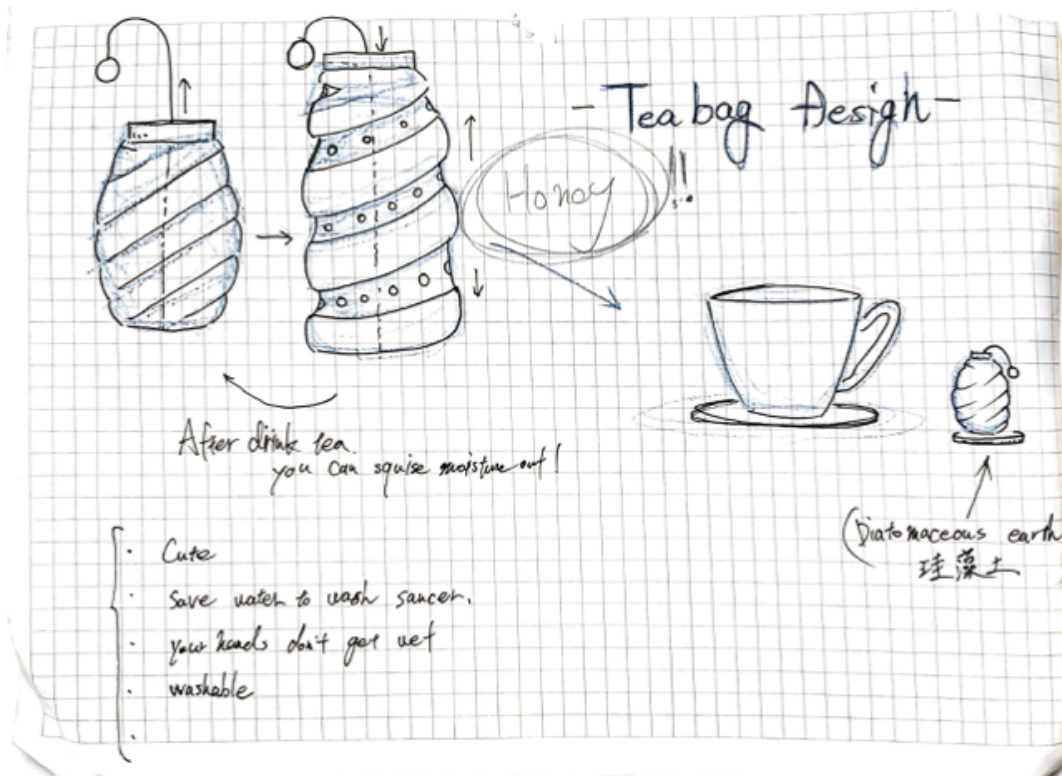 - Teabag Desigh -
Honey !!
After drink tea.
you can squise moisture out!
(Diatomaceous earth
珪藻土
· Cute
· Save water to wash saucer.
· your hands don't get wet
· washable
·